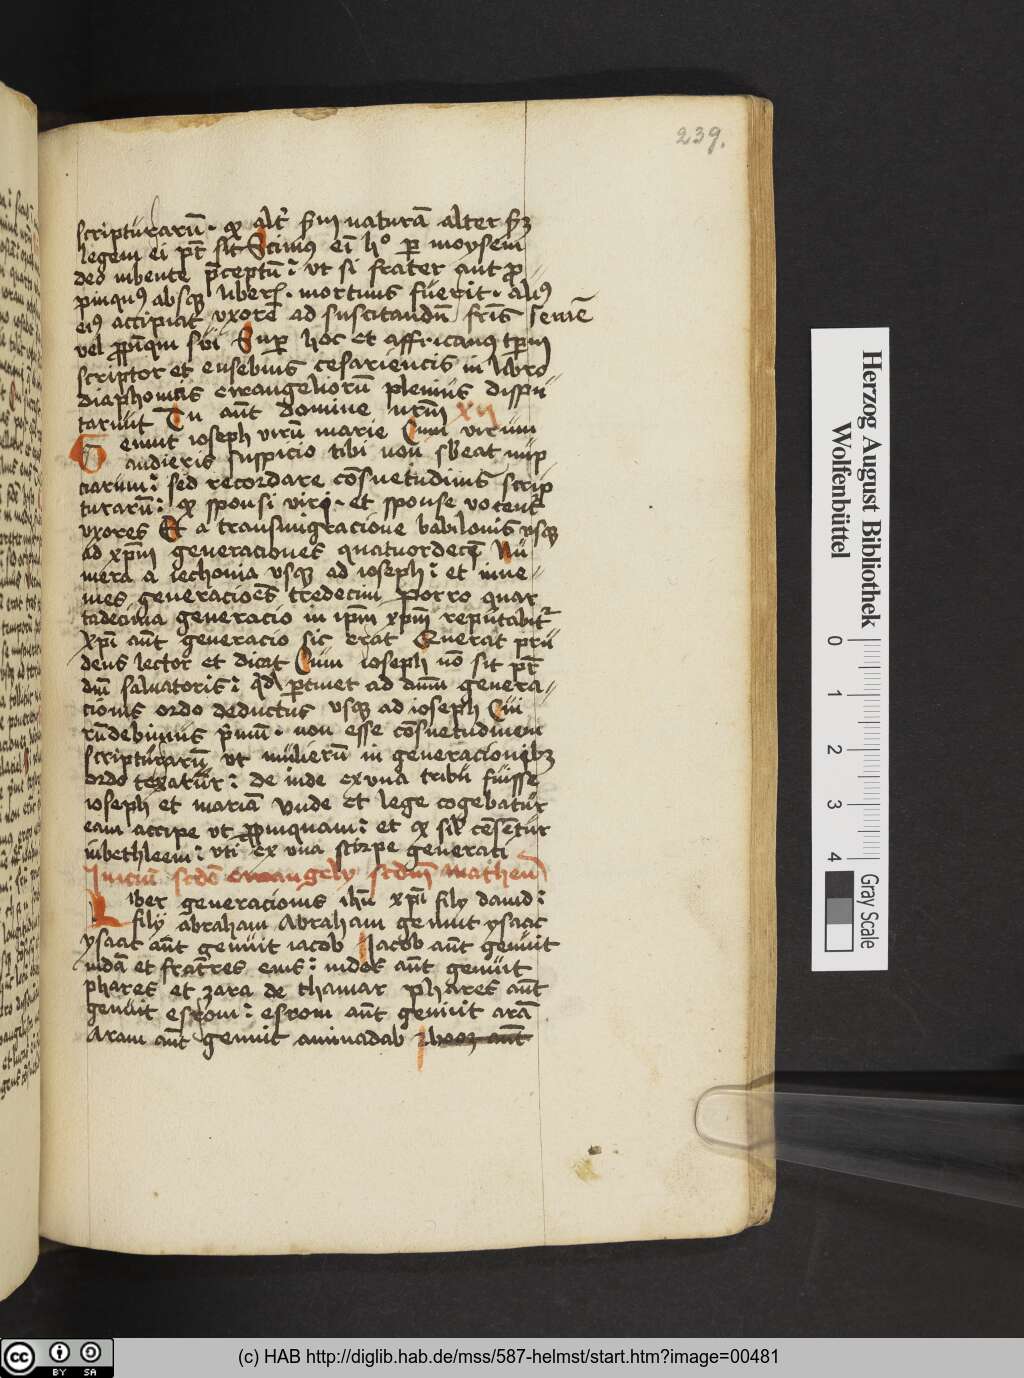 239.
scripturarū. qꝫ altͥ scḋm naturā alter scḋꝫ
legem ei pr̄ sit Scimꝰ eī h° ꝑ moysem
deo iubente p̄ceptū: vt si frater aut ꝓ
pinquꝰ absqꝫ liberꝭ. mortuus fuerit. aliꝰ
eiꝰ accipiat vxorē ad suscitandū fr̄is semē
vel ꝓpīqui sui Suꝑ hoc et affricanꝰ tp̄m
scriptor et eusebius cesariencis in libro
diaphonitis ewangeliorū plenius dispu
taruut Tu aūt domine nr̄m XII
Genuit ioseph virū marie Cum virum
audieris suspicio tibi non sbeat nup
ciarum: sed recordare cōsuetudinis scrip
turarū: qꝫ sponsi viri. et sponse vocent᷑
vxores Et a transmigracione babilonis vsqꝫ
ad xp̄m generaciones quatuordecē Nu
mera a iechonia vsqꝫ ad ioseph: et inue
nies generacioēs tredecim Porro quar
tadecima generacio in ip̄m xp̄m reputabit᷑
Xp̄i aūt generacio sic erat Querat pru
dens lector et dicat Cum ioseph nō sit pr̄
dn̄i saluatoris: qd ꝑtinet ad dn̄m genera
cionis ordo deductus vsqꝫ ad ioseph Cui
rn̄debimus p̄mū. non esse cōsuetudinem
scripturarū vt mulierū in generacionibꝫ
ordo texatur: de inde ex vna tribu fuisse
ioseph et mariā Vnde et lege cogebatur
eam accipe vt ꝓpinquam: et qꝫ sil̄ cēsētur
inbethleem: vti ex vna stirpe generati
Iniciū scdē ewangely scdm̄ matheū
Liber generacionis ihū xp̄i fily dauid:
fily abraham Abraham genuit ysaac
ysaac aūt genuit iacob Iacob aūt genuit
iudā et fratres eius: iudas aūt genuit
phares et zara de thamar Phares aūt
genuit esrom: esrom aūt genuit arā
Aram aūt genuit aminadab
Herzog August Bibliothek
Wolfenbüttel
0 1 2 3 4
Gray Scale
cc BY SA
(c) HAB http://diglib.hab.de/mss/587-helmst/start.htm?image=00481